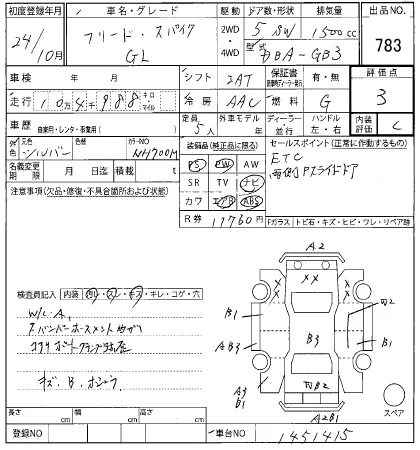 初度登録年月 車名・グレード 駆動 ドア数・形状 排気量 出品NO.
24/10月 フリード・スパイク GL 2WD・4WD 5 SW 1500cc 783
型式 DBA-GB3
車検 年 月 シフト 2AT 保証書 有・無 評価点 3
走行 キロ マイル 冷房 AAC 燃料 G
車歴 自家用・レンタ・事業用( ) 定員 5人 外車モデル 年 ディーラー 並行 ハンドル 左・右 内装評価 C
外色 元色 シルバー 色替 カラーNO NH700M 装備品(純正品に限る) セールスポイント(正常に作動するもの)
PS PW AW ETC
名義変更期限 月 日迄 積載 t SR TV ナビ
注意事項(欠品・修復・不具合箇所および状態) カワ エアB ABS
R券 17760円
Fガラス(トビ石・キズ・ヒビ・ワレ・リペア跡
A2
XX XX
B1
AB3
B3
B1
A3
B1
B2
A2B1
スペア
検査員記入 内装 汚レ・スレ・キズ・キレ・コゲ・穴
W/L.A,
キズ.B.
長さ cm 幅 cm 高さ cm
登録NO 車台NO 1451415